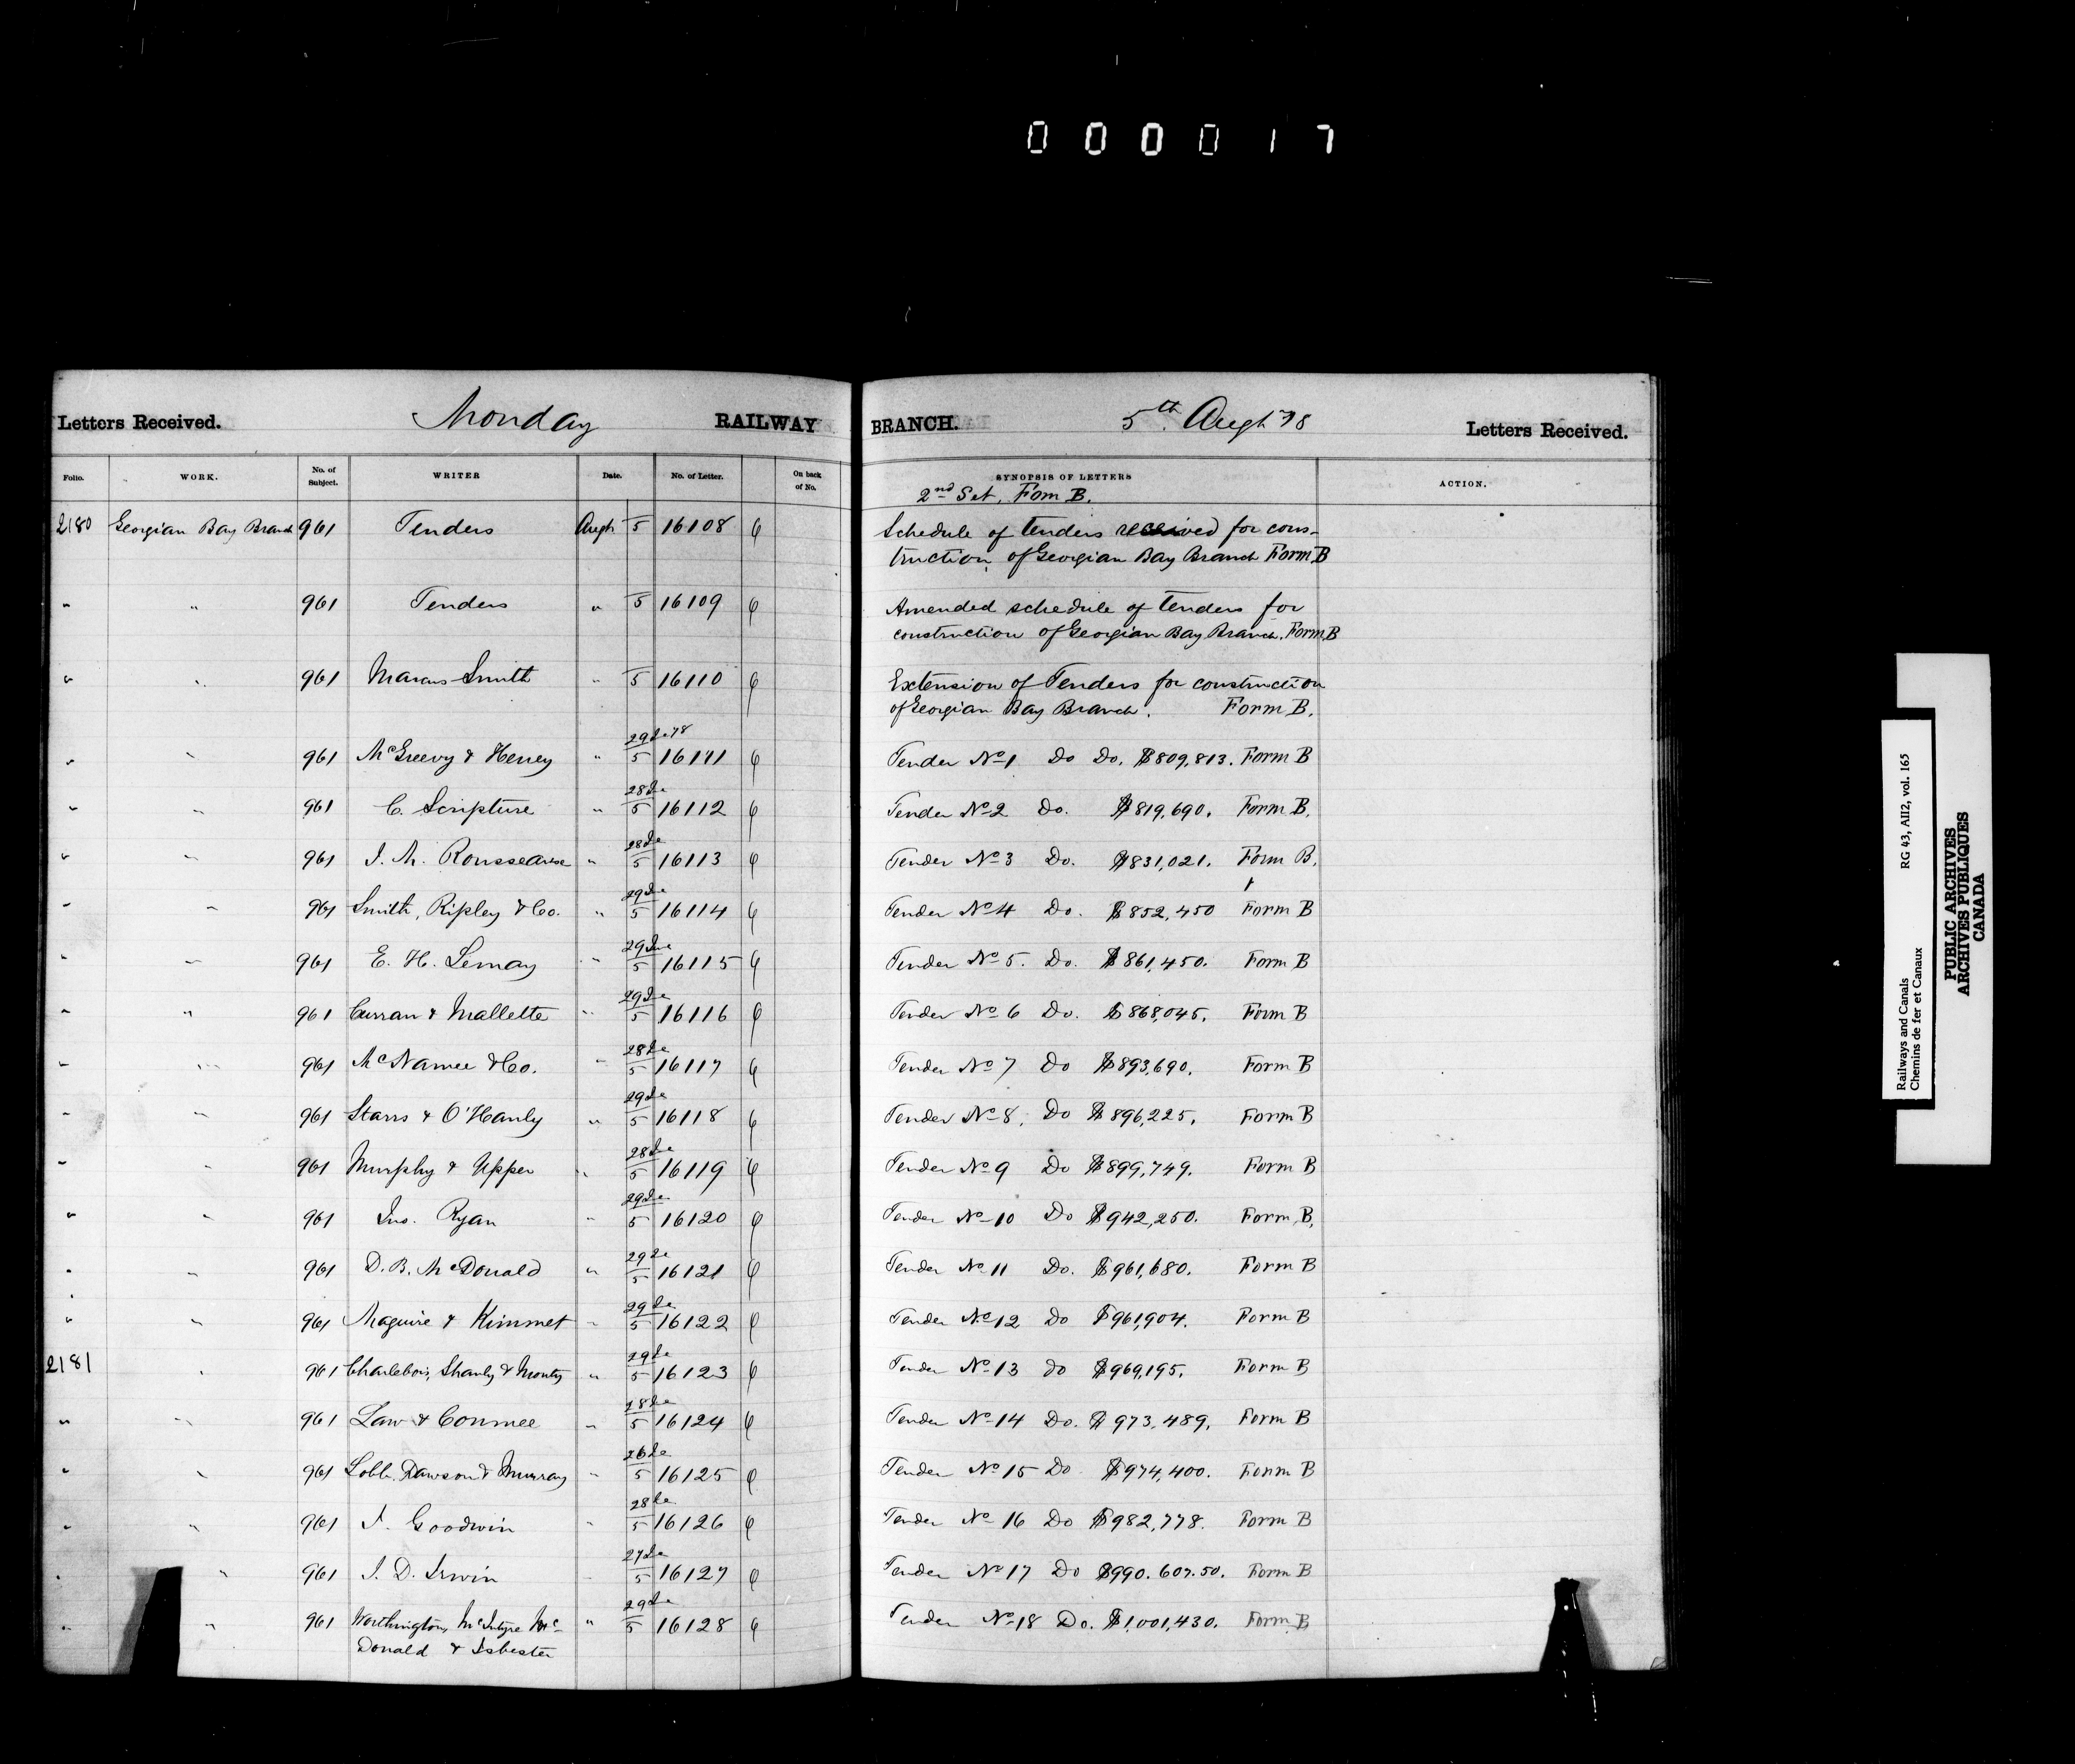 000017
Letters Received. Monday RAILWAY BRANCH. 5th Augt 78 Letters Received.
Folio. WORK. No. of Subject. WRITER Date. No. of Letter. On back of No. SYNOPSIS OF LETTERS ACTION.
2nd Set, Form B.
2180 Georgian Bay Branch 961 Tenders Augt 5 16108 Schedule of tenders received for cons-
truction of Georgian Bay Branch Form B
" " 961 Tenders " 5 16109 Amended schedule of tenders for
construction of Georgian Bay Branch. Form B
" " 961 Marcus Smith " 5 16110 Extension of Tenders for construction
of Georgian Bay Branch. Form B.
" " 961 McGreevy & Heney " 29 5 16111 Tender No 1 Do Do. $809,813. Form B
" " 961 C. Scripture " 28 5 16112 Tender No 2 Do. $819,690. Form B.
" " 961 J. M. Rousseau " 28 5 16113 Tender No 3 Do. $831,021. Form B.
" " 961 Smith, Ripley & Co. " 29 5 16114 Tender No 4 Do. $852,450 Form B
" " 961 E. H. Lemay " 29 5 16115 Tender No 5. Do. $861,450. Form B
" " 961 Curran & Mallette " 29 5 16116 Tender No 6 Do. $868,045. Form B
" " 961 McNamee & Co. " 28 5 16117 Tender No 7 Do $893,690. Form B
" " 961 Starrs & O'Hanly " 29 5 16118 Tender No 8. Do $896,225. Form B
" " 961 Murphy & Upper " 28 5 16119 Tender No 9 Do $899,749. Form B
" " 961 Jno. Ryan " 29 5 16120 Tender No 10 Do $942,250. Form B.
" " 961 D. B. McDonald " 29 5 16121 Tender No 11 Do. $961,680. Form B
" " 961 Maguire & Kimmet " 29 5 16122 Tender No 12 Do $961,904. Form B
2181 " 961 Charlebois, Shanly & Monty " 29 5 16123 Tender No 13 do $969,195. Form B
" " 961 Law & Conmee " 28 5 16124 Tender No 14 Do. $973,489. Form B
" " 961 Lobb, Dawson & Murray " 26 5 16125 Tender No 15 Do $974,400. Form B
" " 961 J. Goodwin " 28 5 16126 Tender No 16 Do $982,778. Form B
" " 961 J. D. Irwin " 27 5 16127 Tender No 17 Do $990.607.50. Form B
" " 961 Worthington, McIntyre Mc- " 29 5 16128 Tender No 18 Do. $1,001,430. Form B
Donald & Isbester
Railways and Canals RG 43, AII2, vol. 165
Chemins de fer et Canaux
PUBLIC ARCHIVES
ARCHIVES PUBLIQUES
CANADA